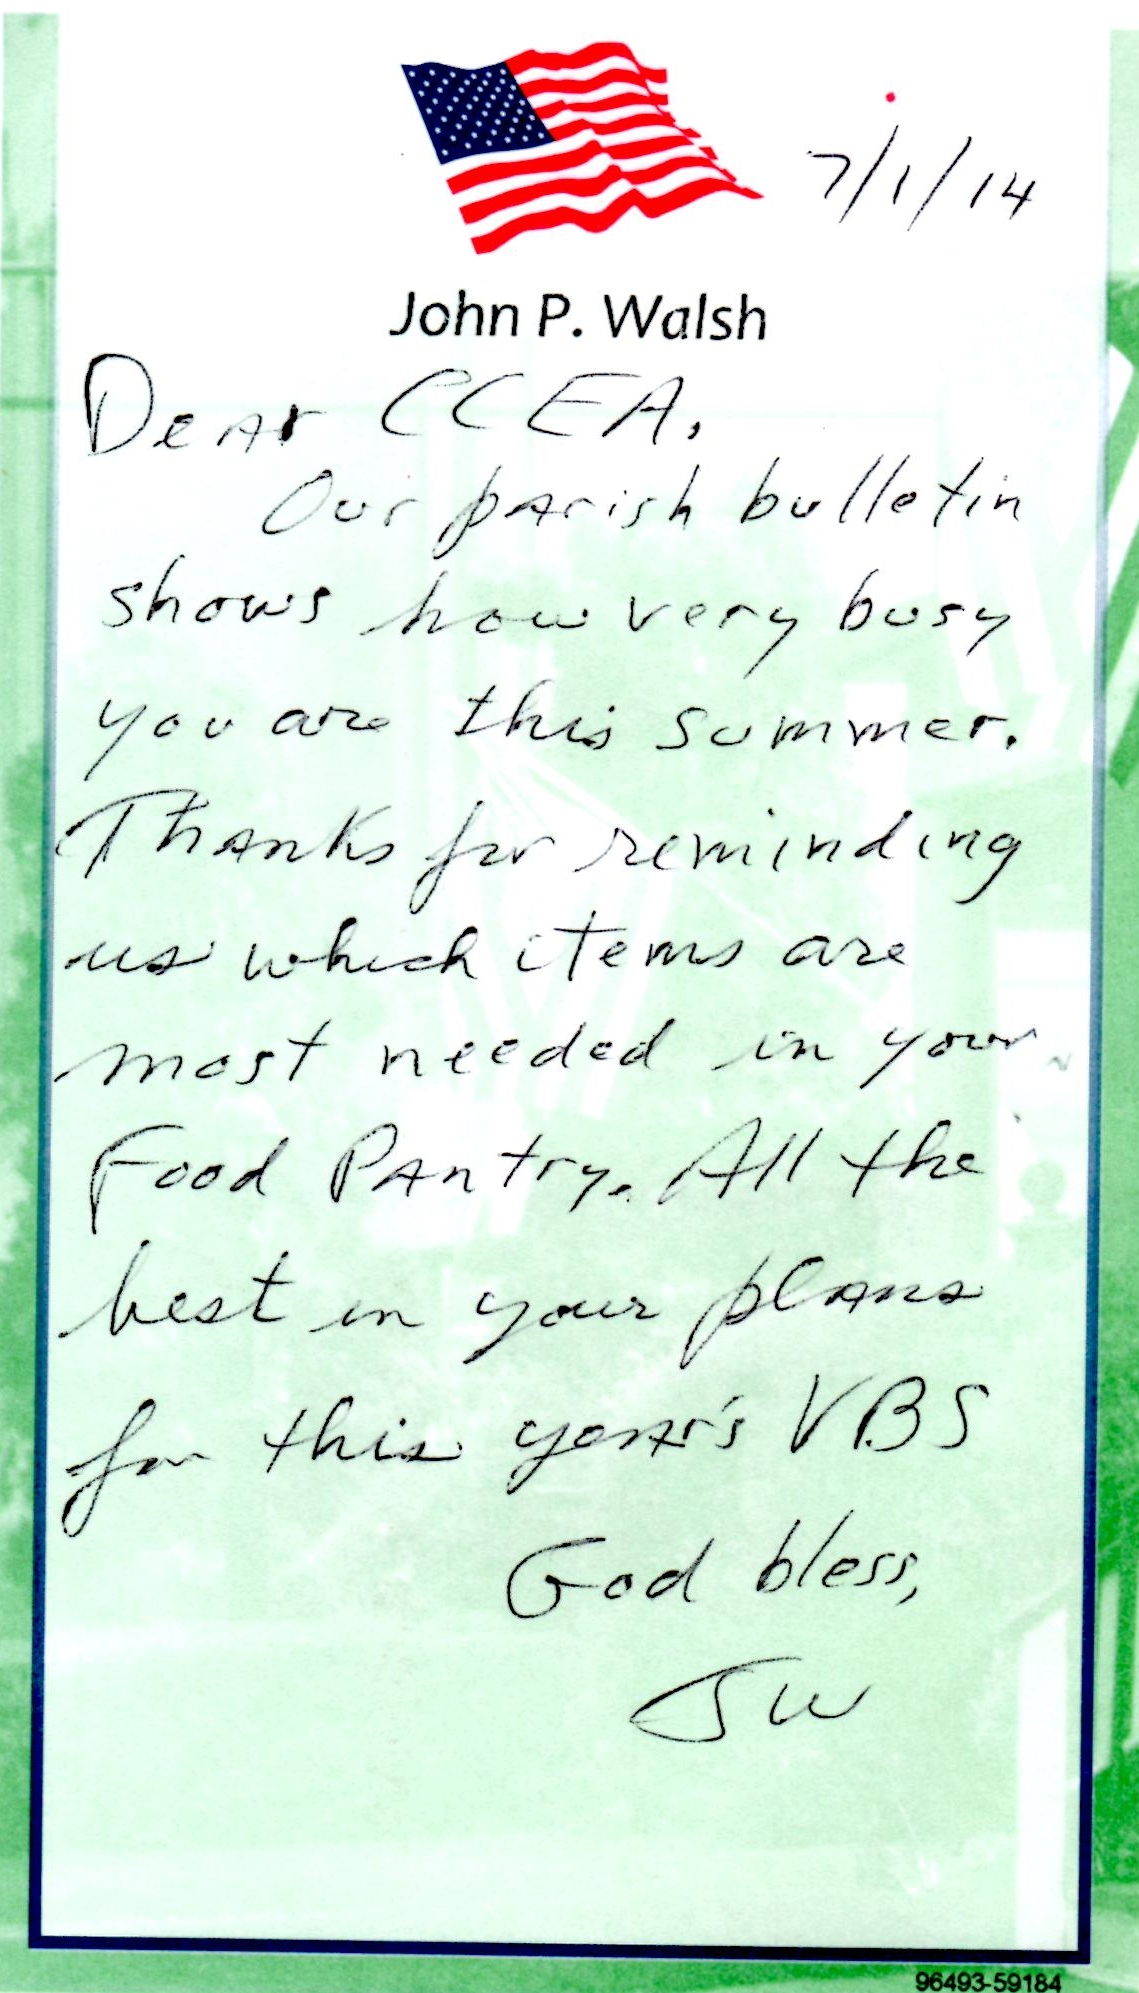 7/1/14
John P. Walsh
Dear CCEA,
Our parish bulletin
shows how very busy
you are this summer.
Thanks for reminding
us which items are
most needed in your
Food Pantry. All the
best in your plans
for this year's VBS
God bless,
JW
96493-59184